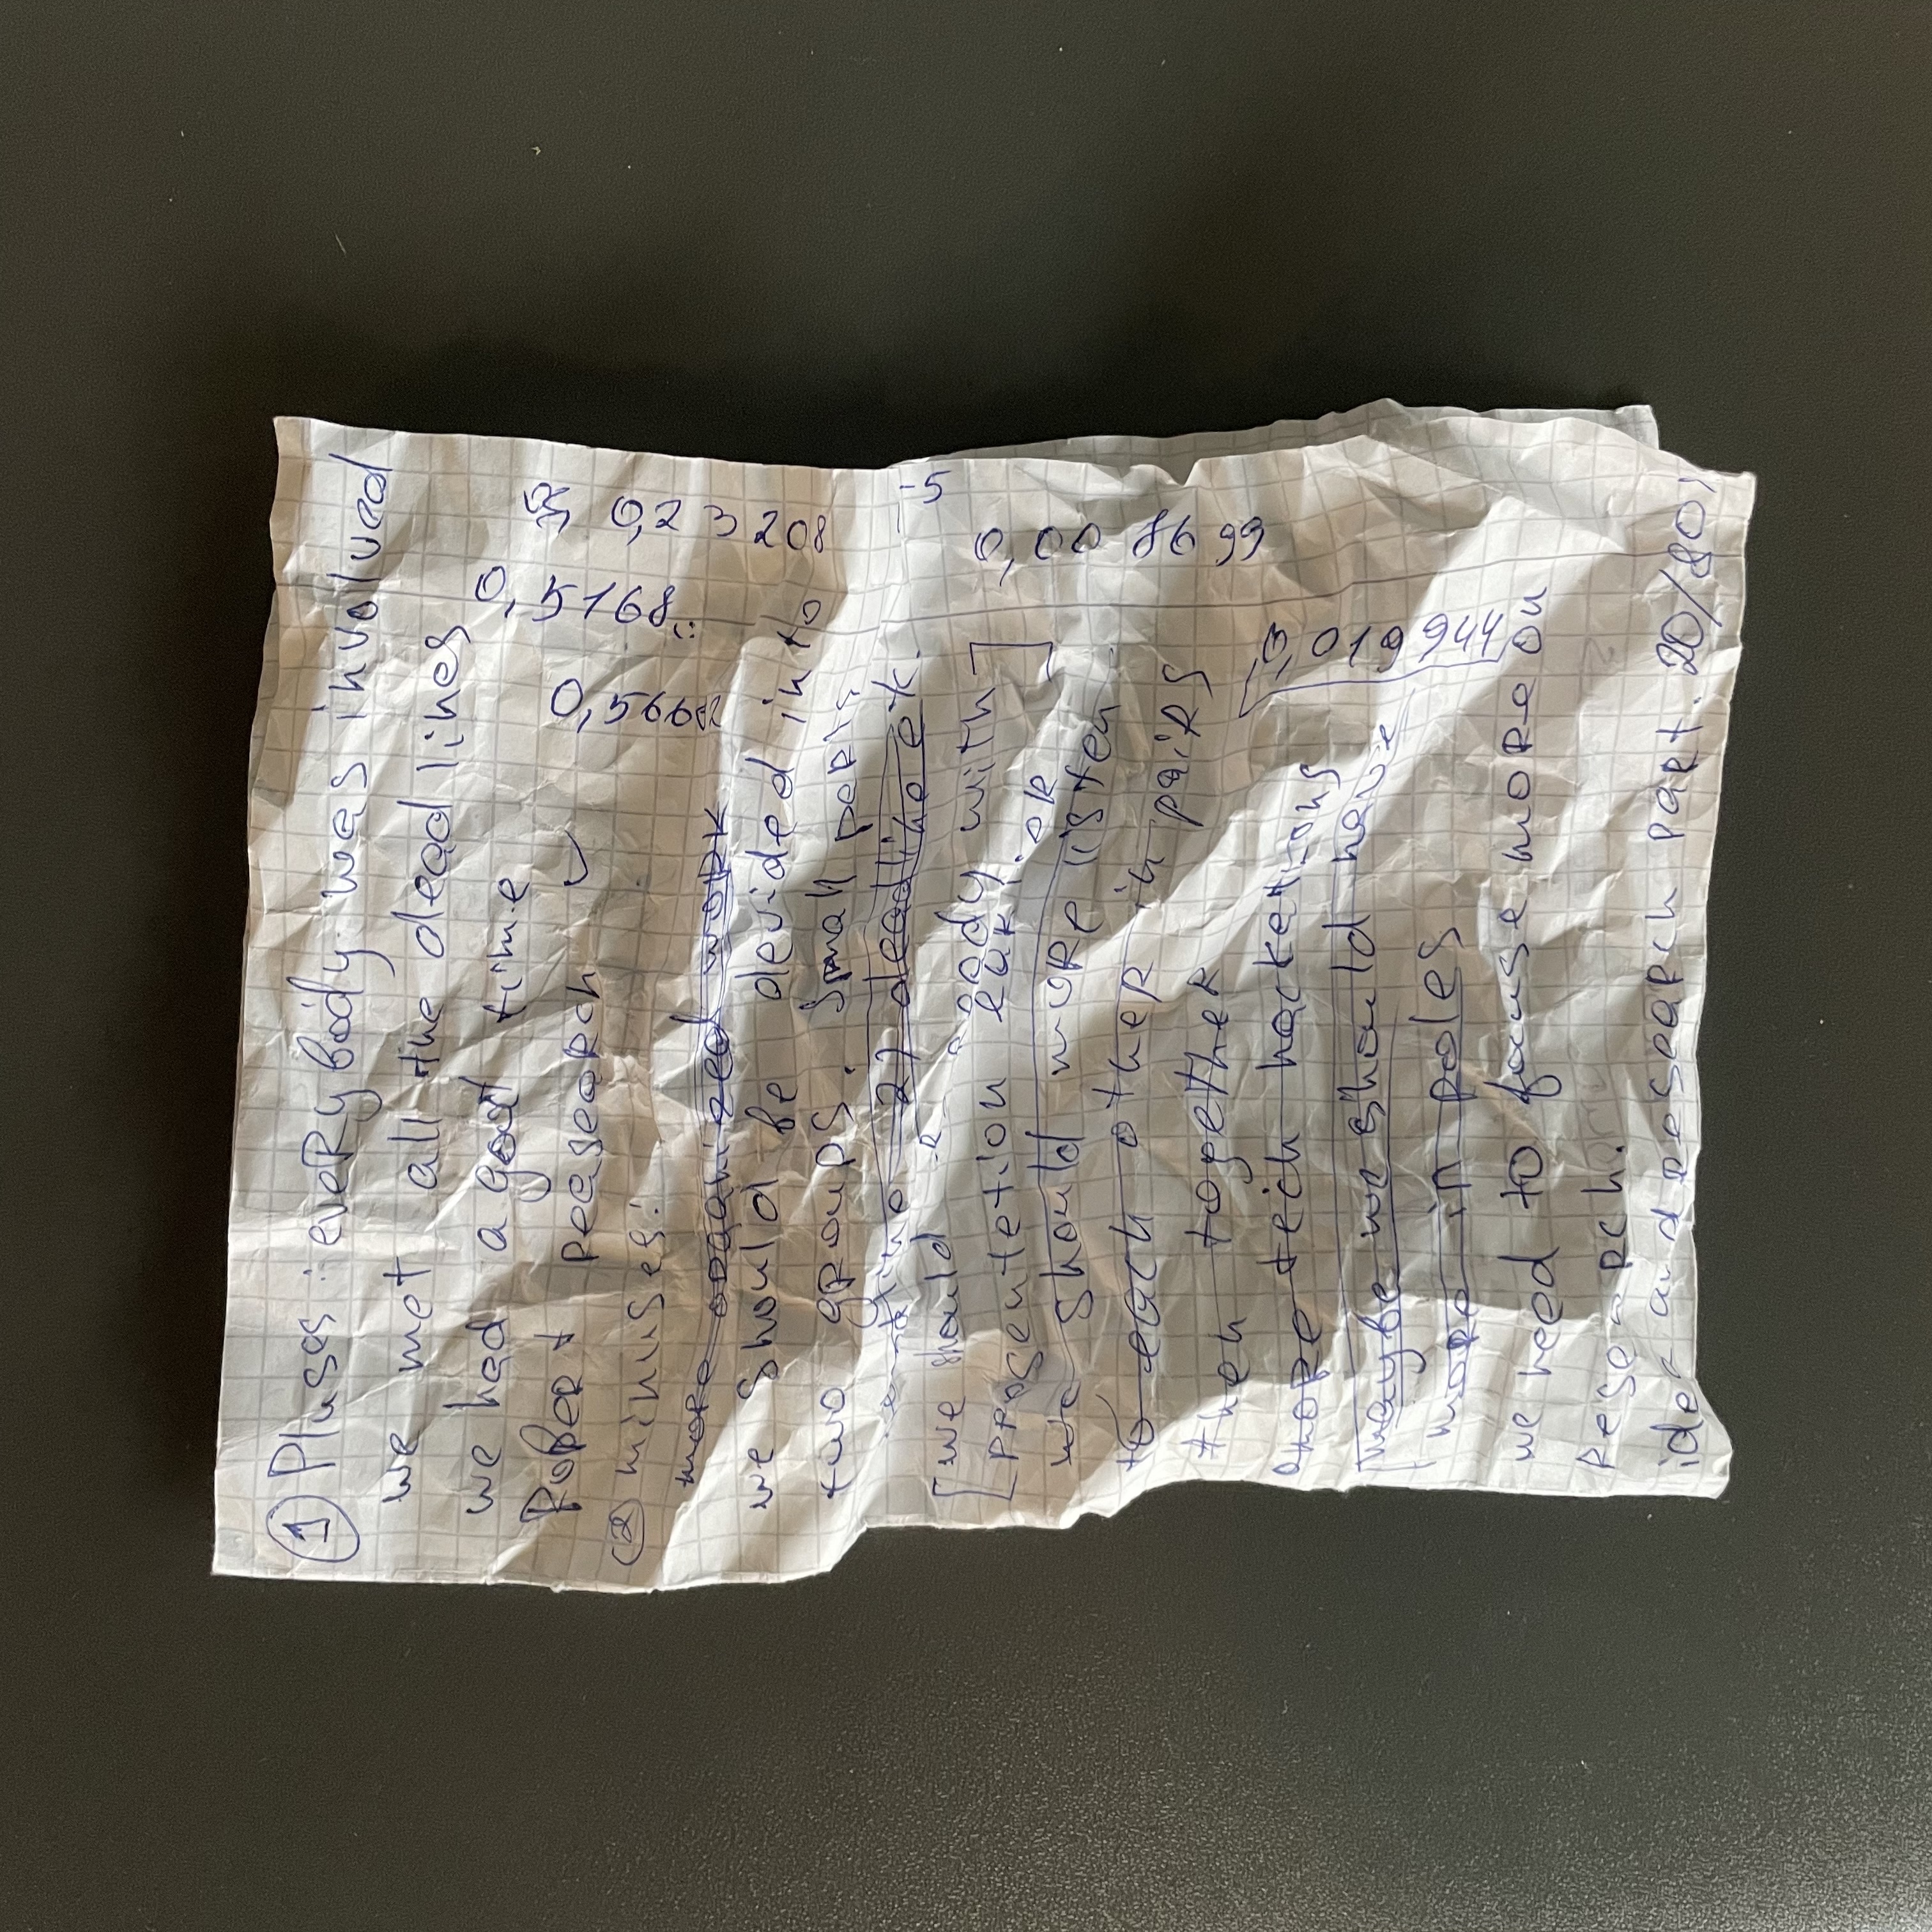 ① Pluses: everybody was involved
we met all the deadlines
we had a good time
Robert reasearch
② minuses:
more organized work
we should be devided into
two groups. Small parts
2) deadline
[we should be ready with]
[presentetion earl.or
we should more listen
to each other in pairs
then together
more tech hacketons
maybe we should have
more in poles
we need to fouse more on
research.
idea and research part. 20/80)
0,23208
0,5168
0,566
-5
0,008699
0,019944